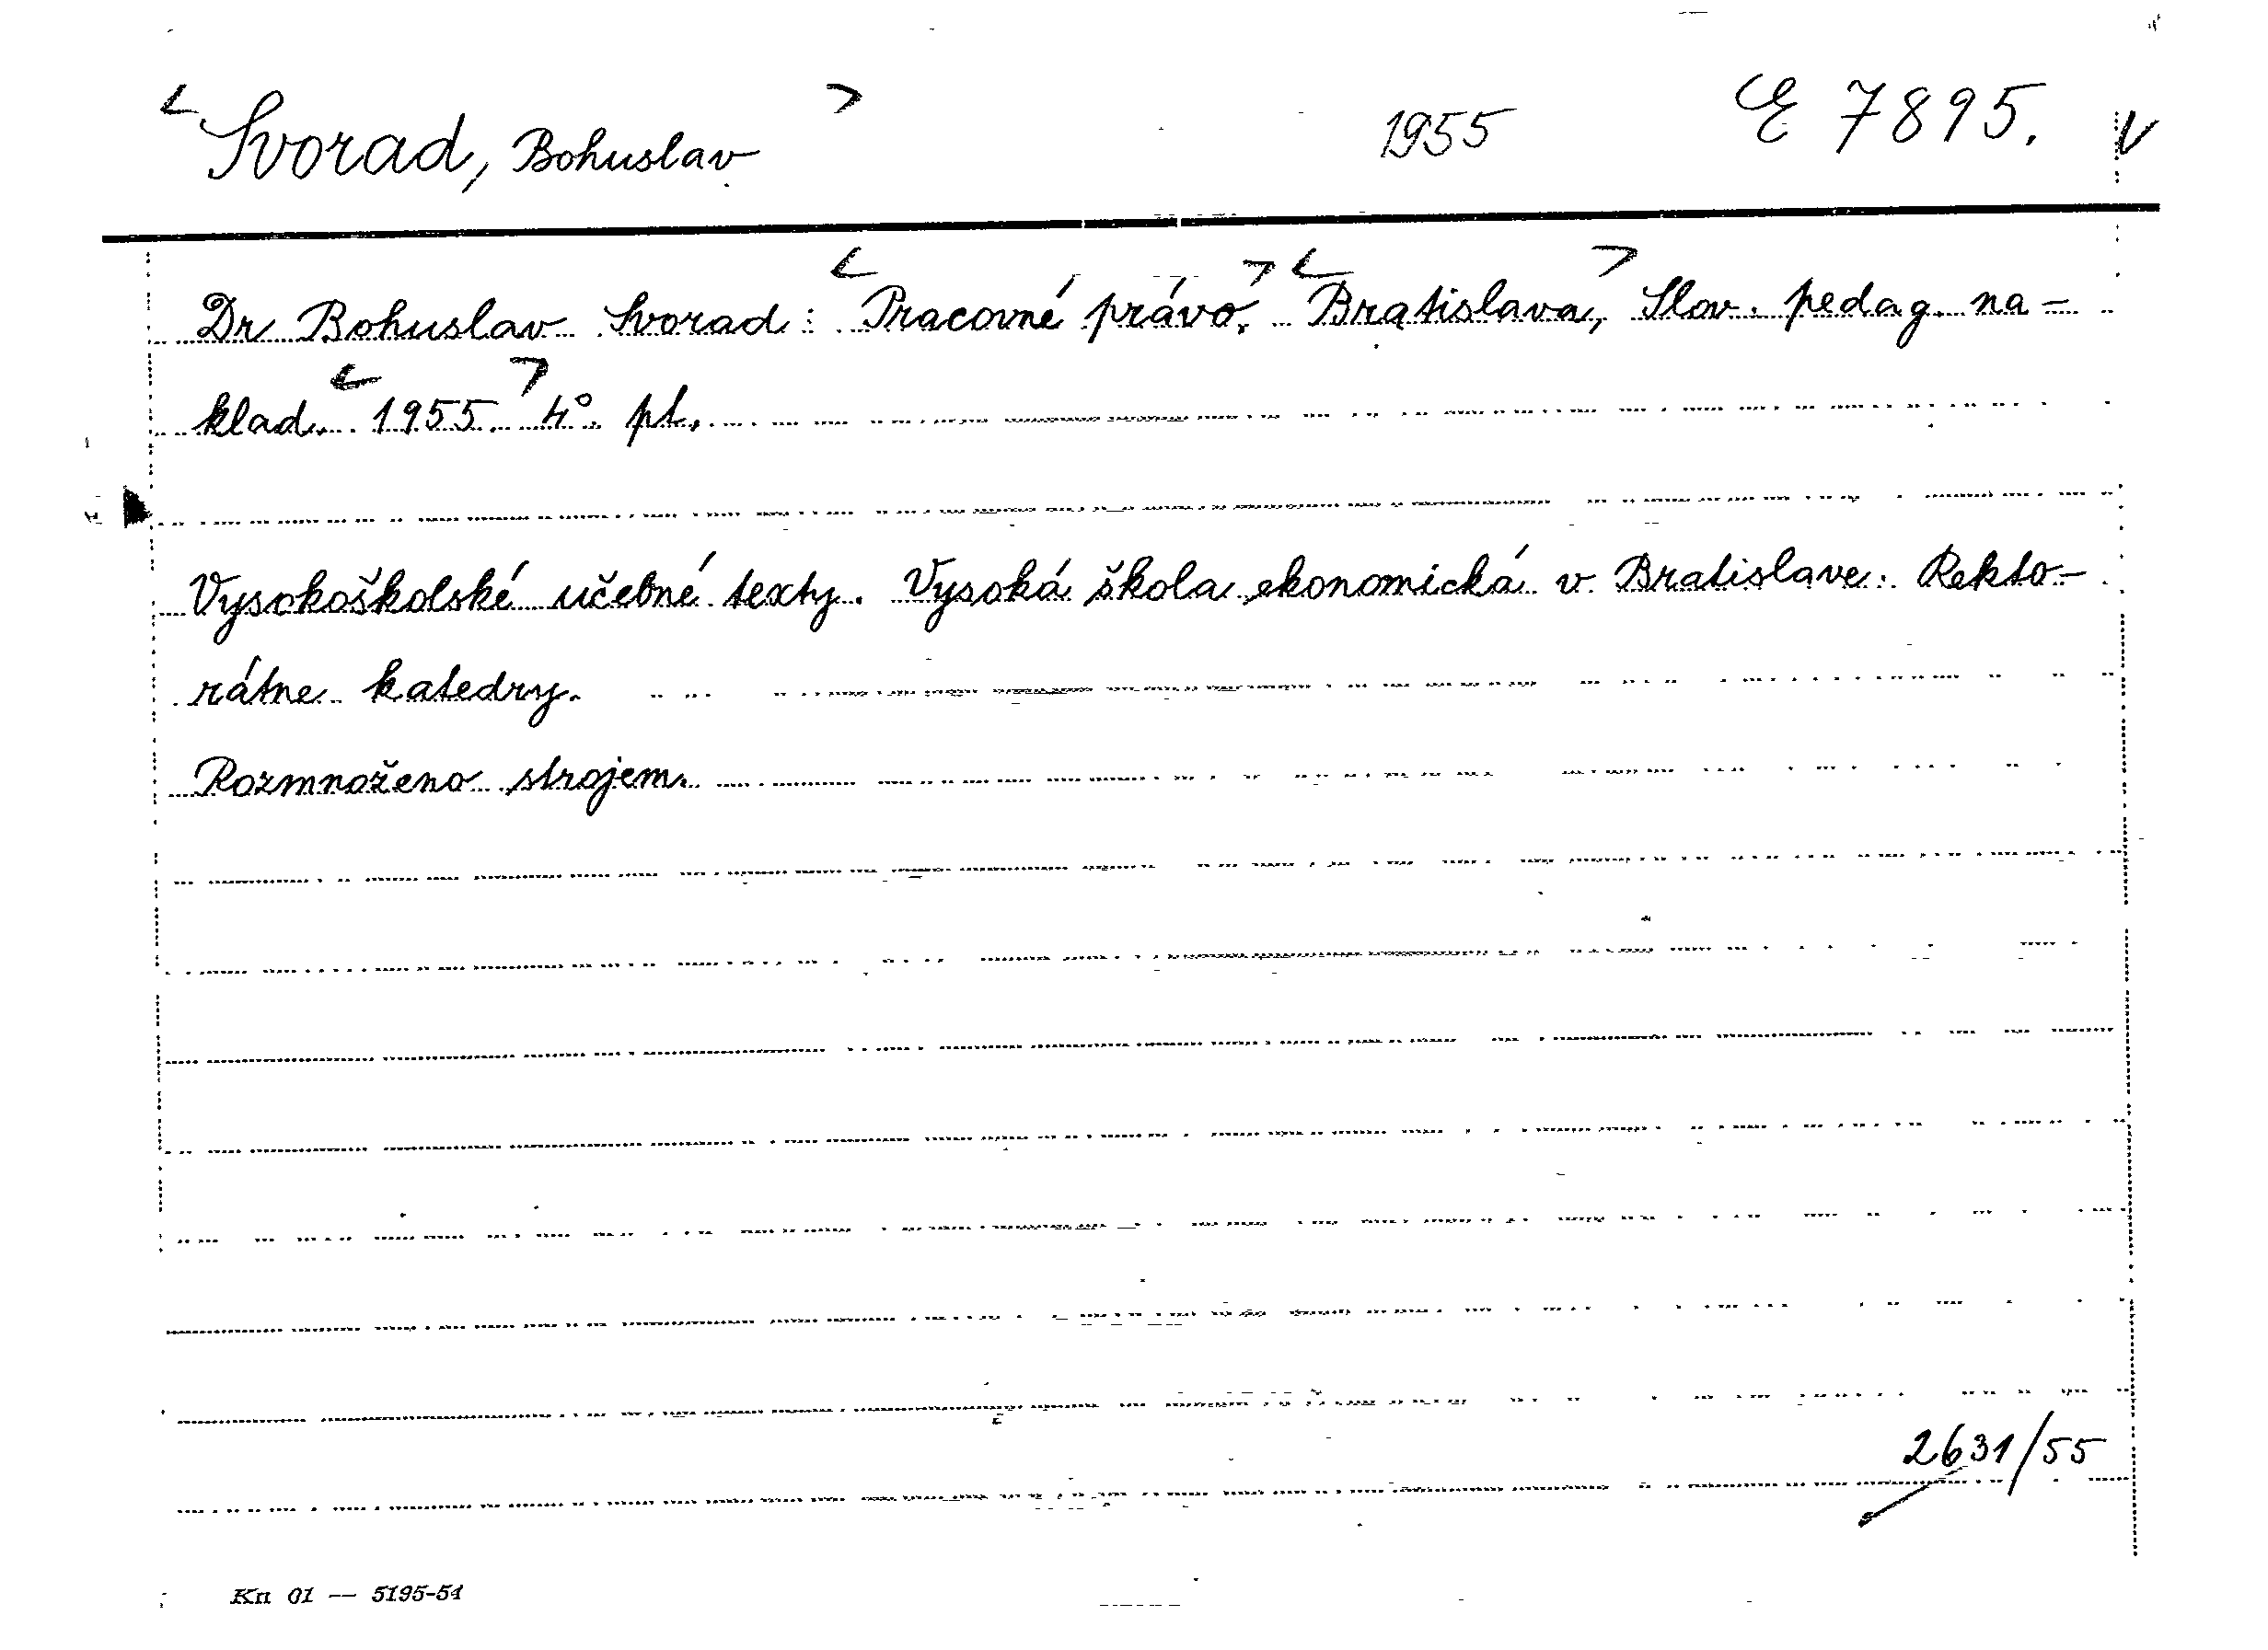 <Svorad, Bohuslav> 1955 E 7895. V
Dr Bohuslav Svorad: <Pracovné právo.> <Bratislava,> Slov. pedag. na-
klad. <1955.> 4°. pt.
Vysokoškolské učebné texty. Vysoká škola ekonomická v Bratislave. Rekto-
rátne katedry.
Rozmnoženo strojem.
2631/55
Kn 01 — 5195-54